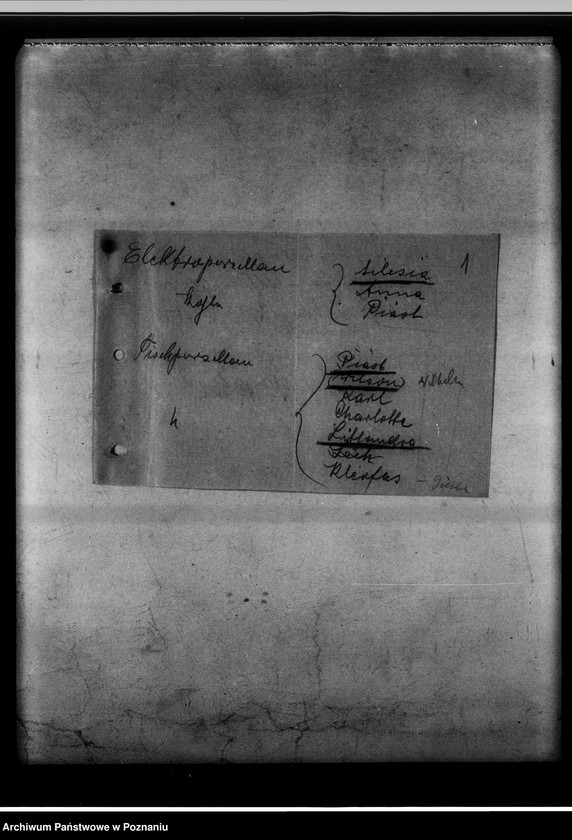 1
Elektroporzellan
Silesia
Anna
Piast
Tischporzellan
Piast
Wilson
Karl
Charlotte
Lech
Kleofas
Archiwum Państwowe w Poznaniu